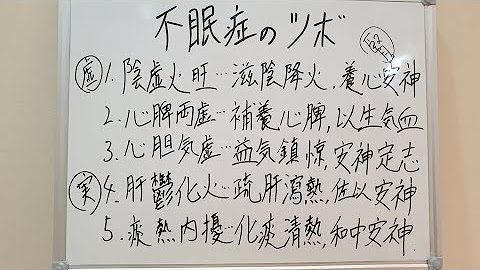 不眠症のツボ
虚 1. 陰虚火旺…滋陰降火, 養心安神
2. 心脾両虚…補養心脾, 以生気血
3. 心胆気虚…益気鎮惊, 安神定志
実 4. 肝鬱化火…疏肝瀉熱, 佐以安神
5. 痰熱内擾…化痰清熱, 和中安神